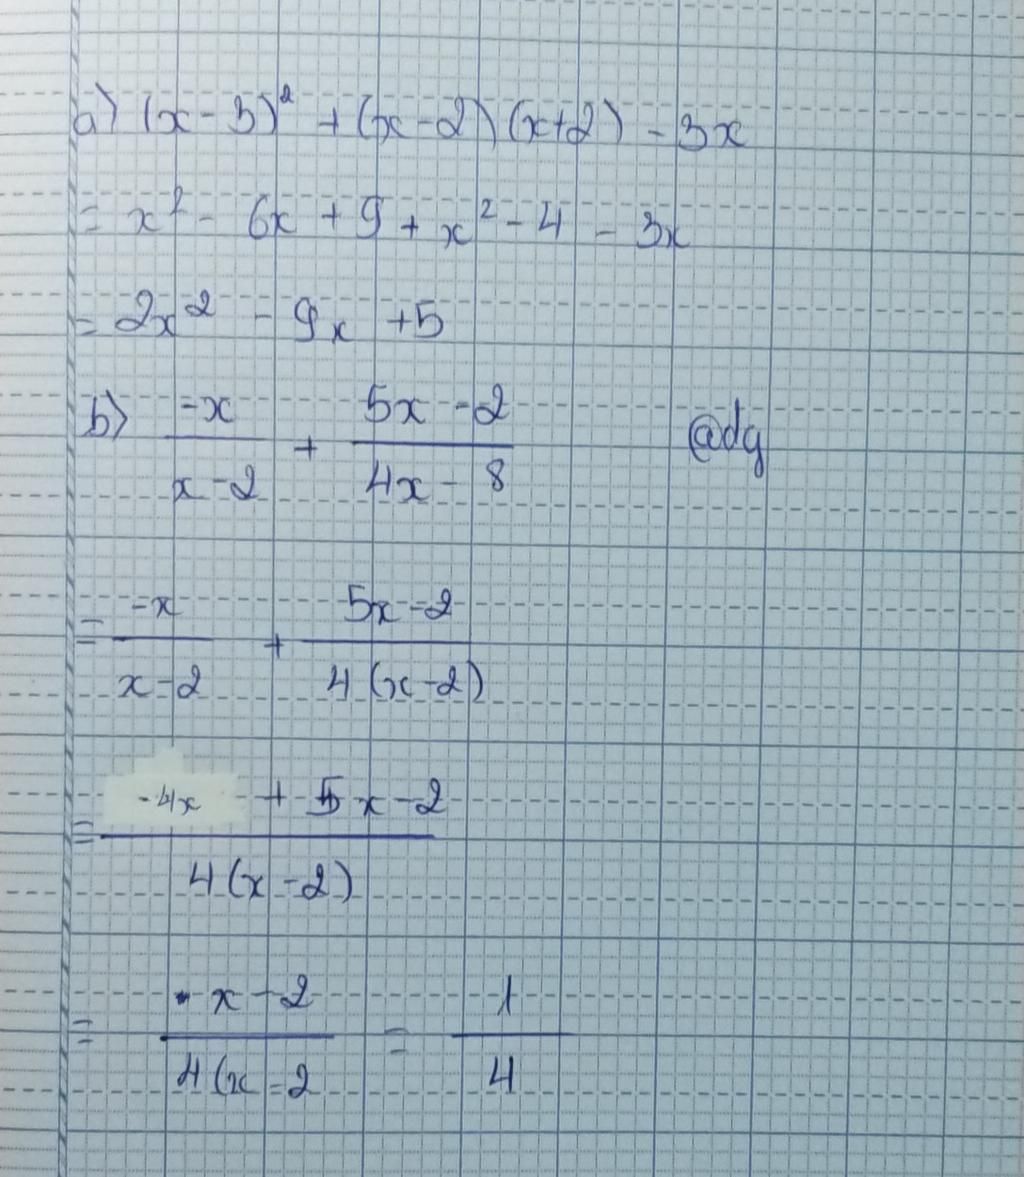 a) (x - 3)² + (x - 2) (x + 2) - 3x
= x² - 6x + 9 + x² - 4 - 3x
= 2x² - 9x + 5
b) -x / x - 2 + 5x - 2 / 4x - 8
@dg
= -x / x - 2 + 5x - 2 / 4 (x - 2)
= -4x + 5x - 2 / 4 (x - 2)
= x - 2 / 4 (x - 2 = 1 / 4